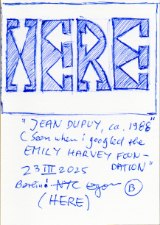 HERE
"JEAN DUPUY, ca. 1988"
(Seen when i googled the
EMILY HARVEY FOUN-
DATION)"
23 III 2025
NYC
B
(HERE)